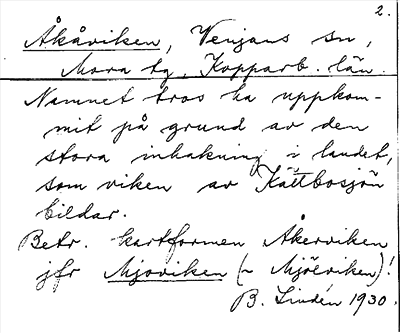 2.
Åkåviken, Venjans sn,
Mora tg, Kopparb. län.
Namnet tros ha uppkom-
mit på grund av den
stora inhakning i landet,
som viken av Kättbosjön
bildar.
Betr. kartformen Åkerviken
jfr Mjoviken (~ Mjöerviken)!
B. Lindén 1930.